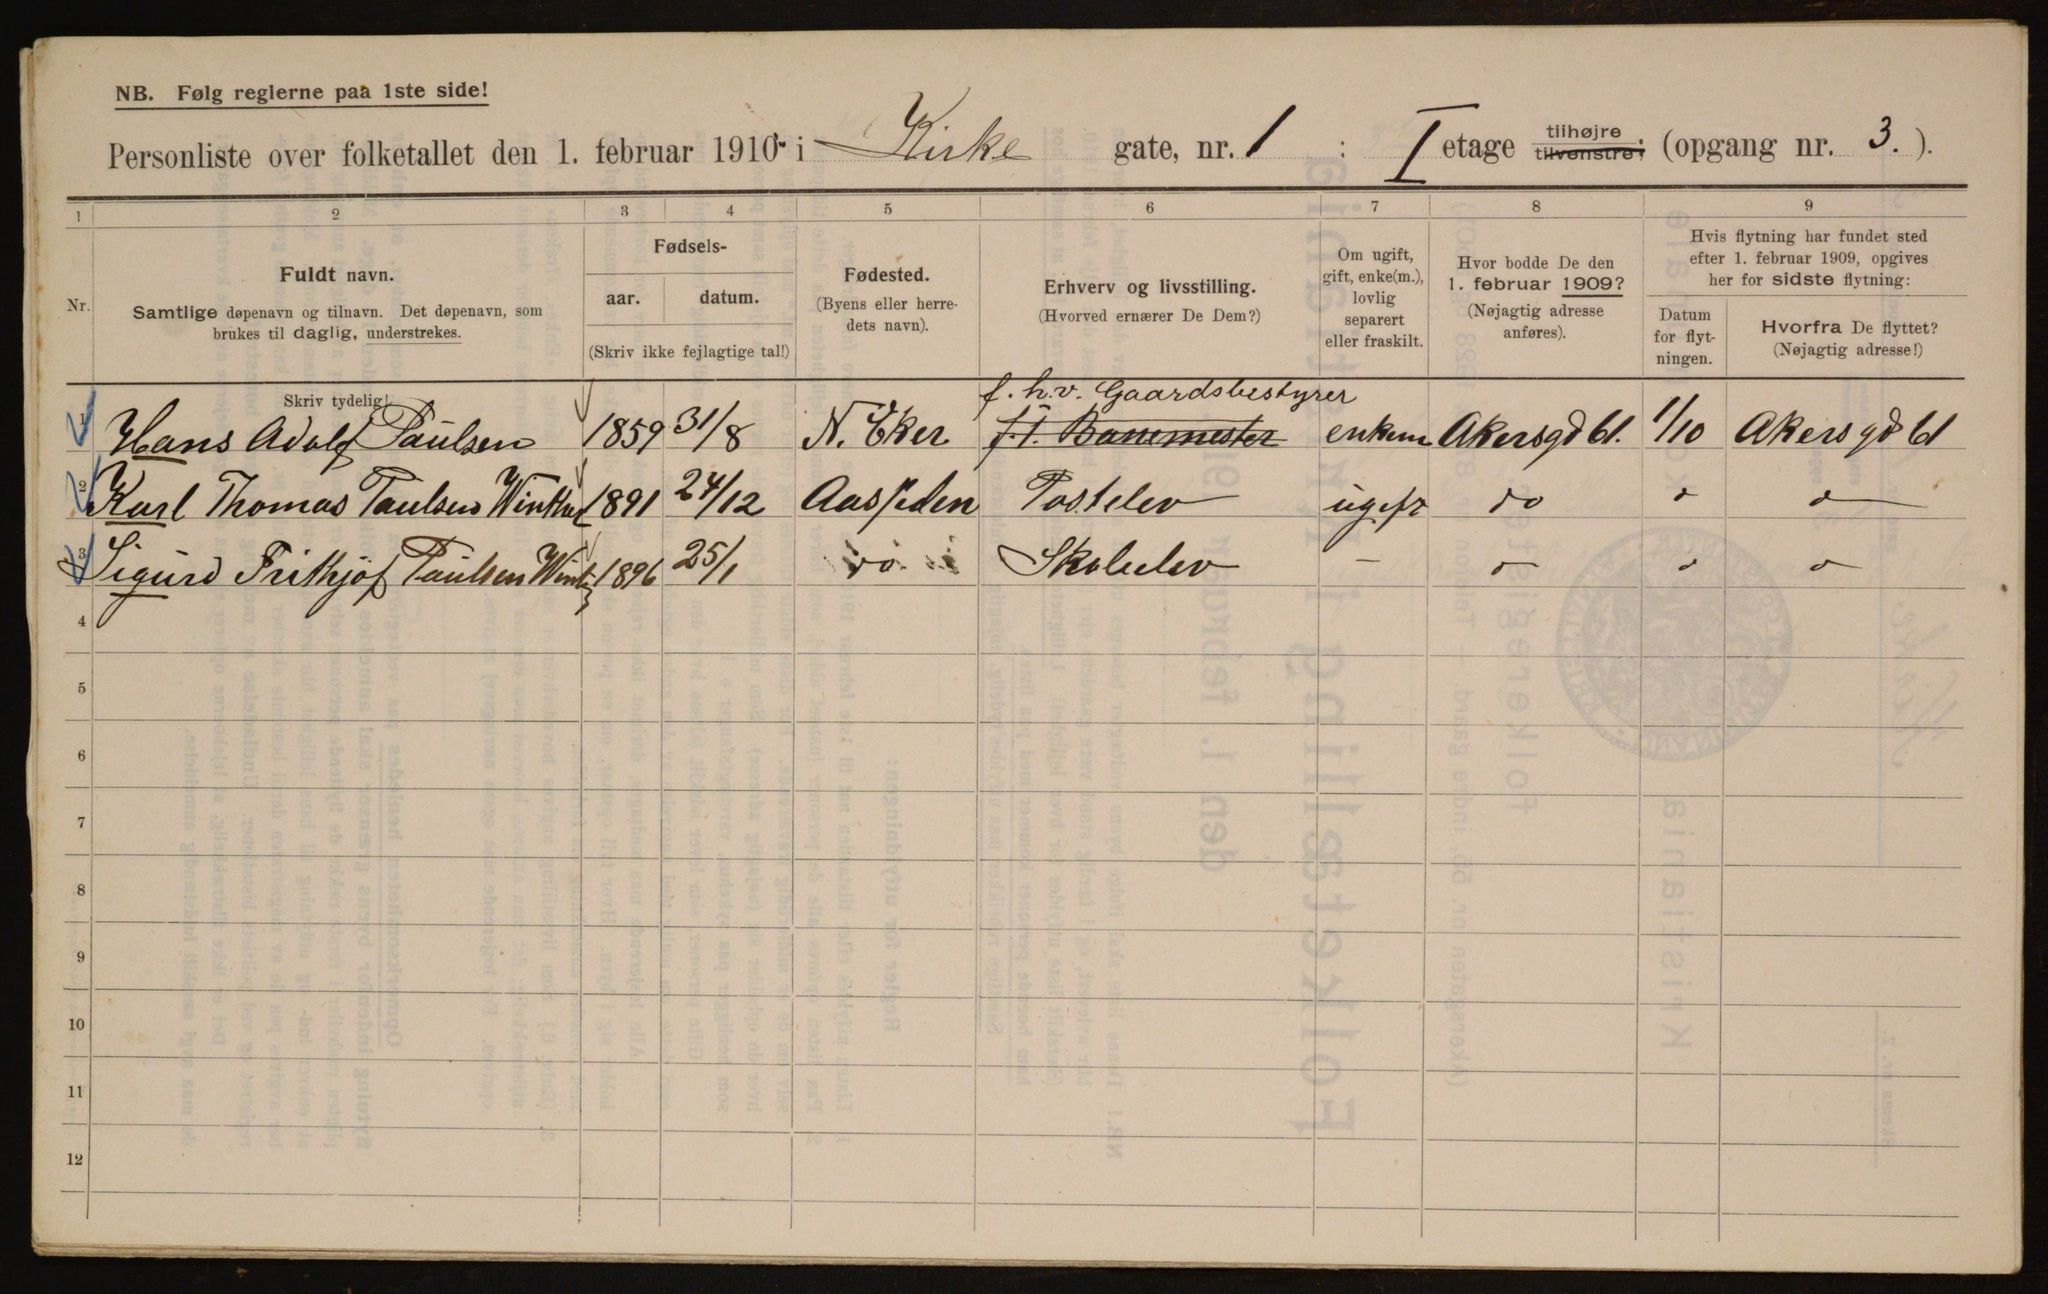 NB. Følg reglerne paa 1ste side!
Personliste over folketallet den 1. februar 1910 i Kirke gate, nr. 1 : I etage tilhøjre tilvenstre; (opgang nr. 3.).
1 2 3 4 5 6 7 8 9
Nr.
Fuldt navn.
Samtlige døpenavn og tilnavn. Det døpenavn, som
brukes til daglig, understrekes.
Skriv tydelig!
Fødsels-
aar. datum.
(Skriv ikke fejlagtige tal!)
Fødested.
(Byens eller herre-
dets navn).
Erhverv og livsstilling.
(Hvorved ernærer De Dem?)
Om ugift,
gift, enke(m.),
lovlig
separert
eller fraskilt.
Hvor bodde De den
1. februar 1909?
(Nøjagtig adresse
anføres).
Hvis flytning har fundet sted
efter 1. februar 1909, opgives
her for sidste flytning:
Datum
for flyt-
ningen.
Hvorfra De flyttet?
(Nøjagtig adresse!)
f. h.v. Gaardsbestyrer
1 Hans Adolf Paulsen 1859 31/8 N. Eker f. T. Banemester enkem Akersgd 61. 1/10 Akersgd 61
2 Karl Thomas Paulsen Winther 1891 24/12 Aas Postelev ugift do " "
3 Sigurd Frithjof Paulsen 1896 25/1 do. Skoleelev - " " "
4
5
6
7
8
9
10
11
12